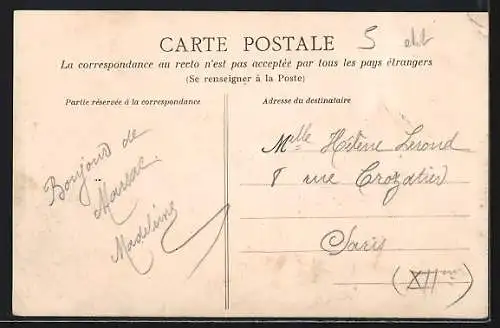 CARTE POSTALE
5
La correspondance au recto n'est pas acceptée par tous les pays étrangers
(Se renseigner à la Poste)
Partie réservée à la correspondance
Adresse du destinataire
Bonjour de
Marsac.
Madeleine
Mlle Hélène Leroud
8 rue Crozatier
Paris
(XIIme)